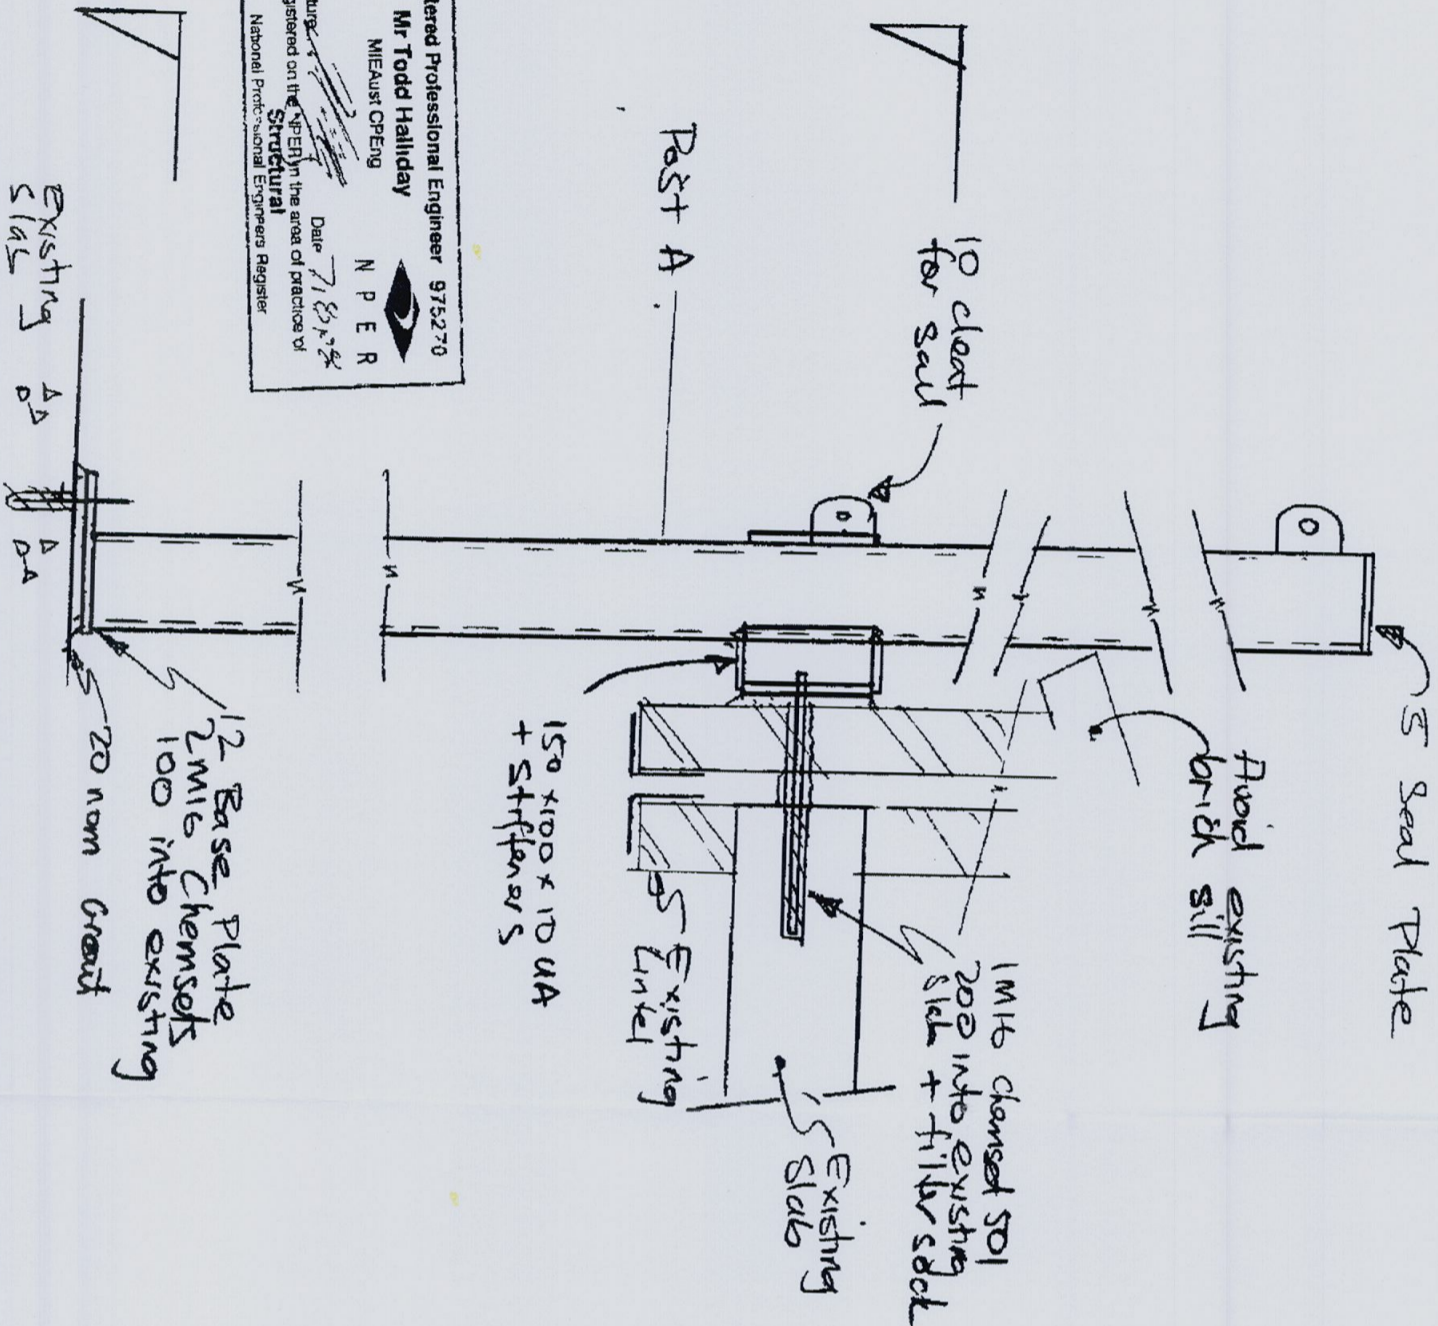 5 Seal Plate
Avoid existing
brick sill
10 cleat
for sail
1M16 chemset 501
200 into existing
slab + filter sock
Existing
Slab
Post A
Existing
Lintel
150 x 100 x 10 UA
+ Stiffeners
12 Base Plate
2M16 Chemsets
100 into existing
20 nom Grout
Existing
slab
tered Professional Engineer 975270
Mr Todd Halliday
MIEAust CPEng
N P E R
ture
Date
gistered on the NPER in the area of practice of
Structural
National Professional Engineers Register